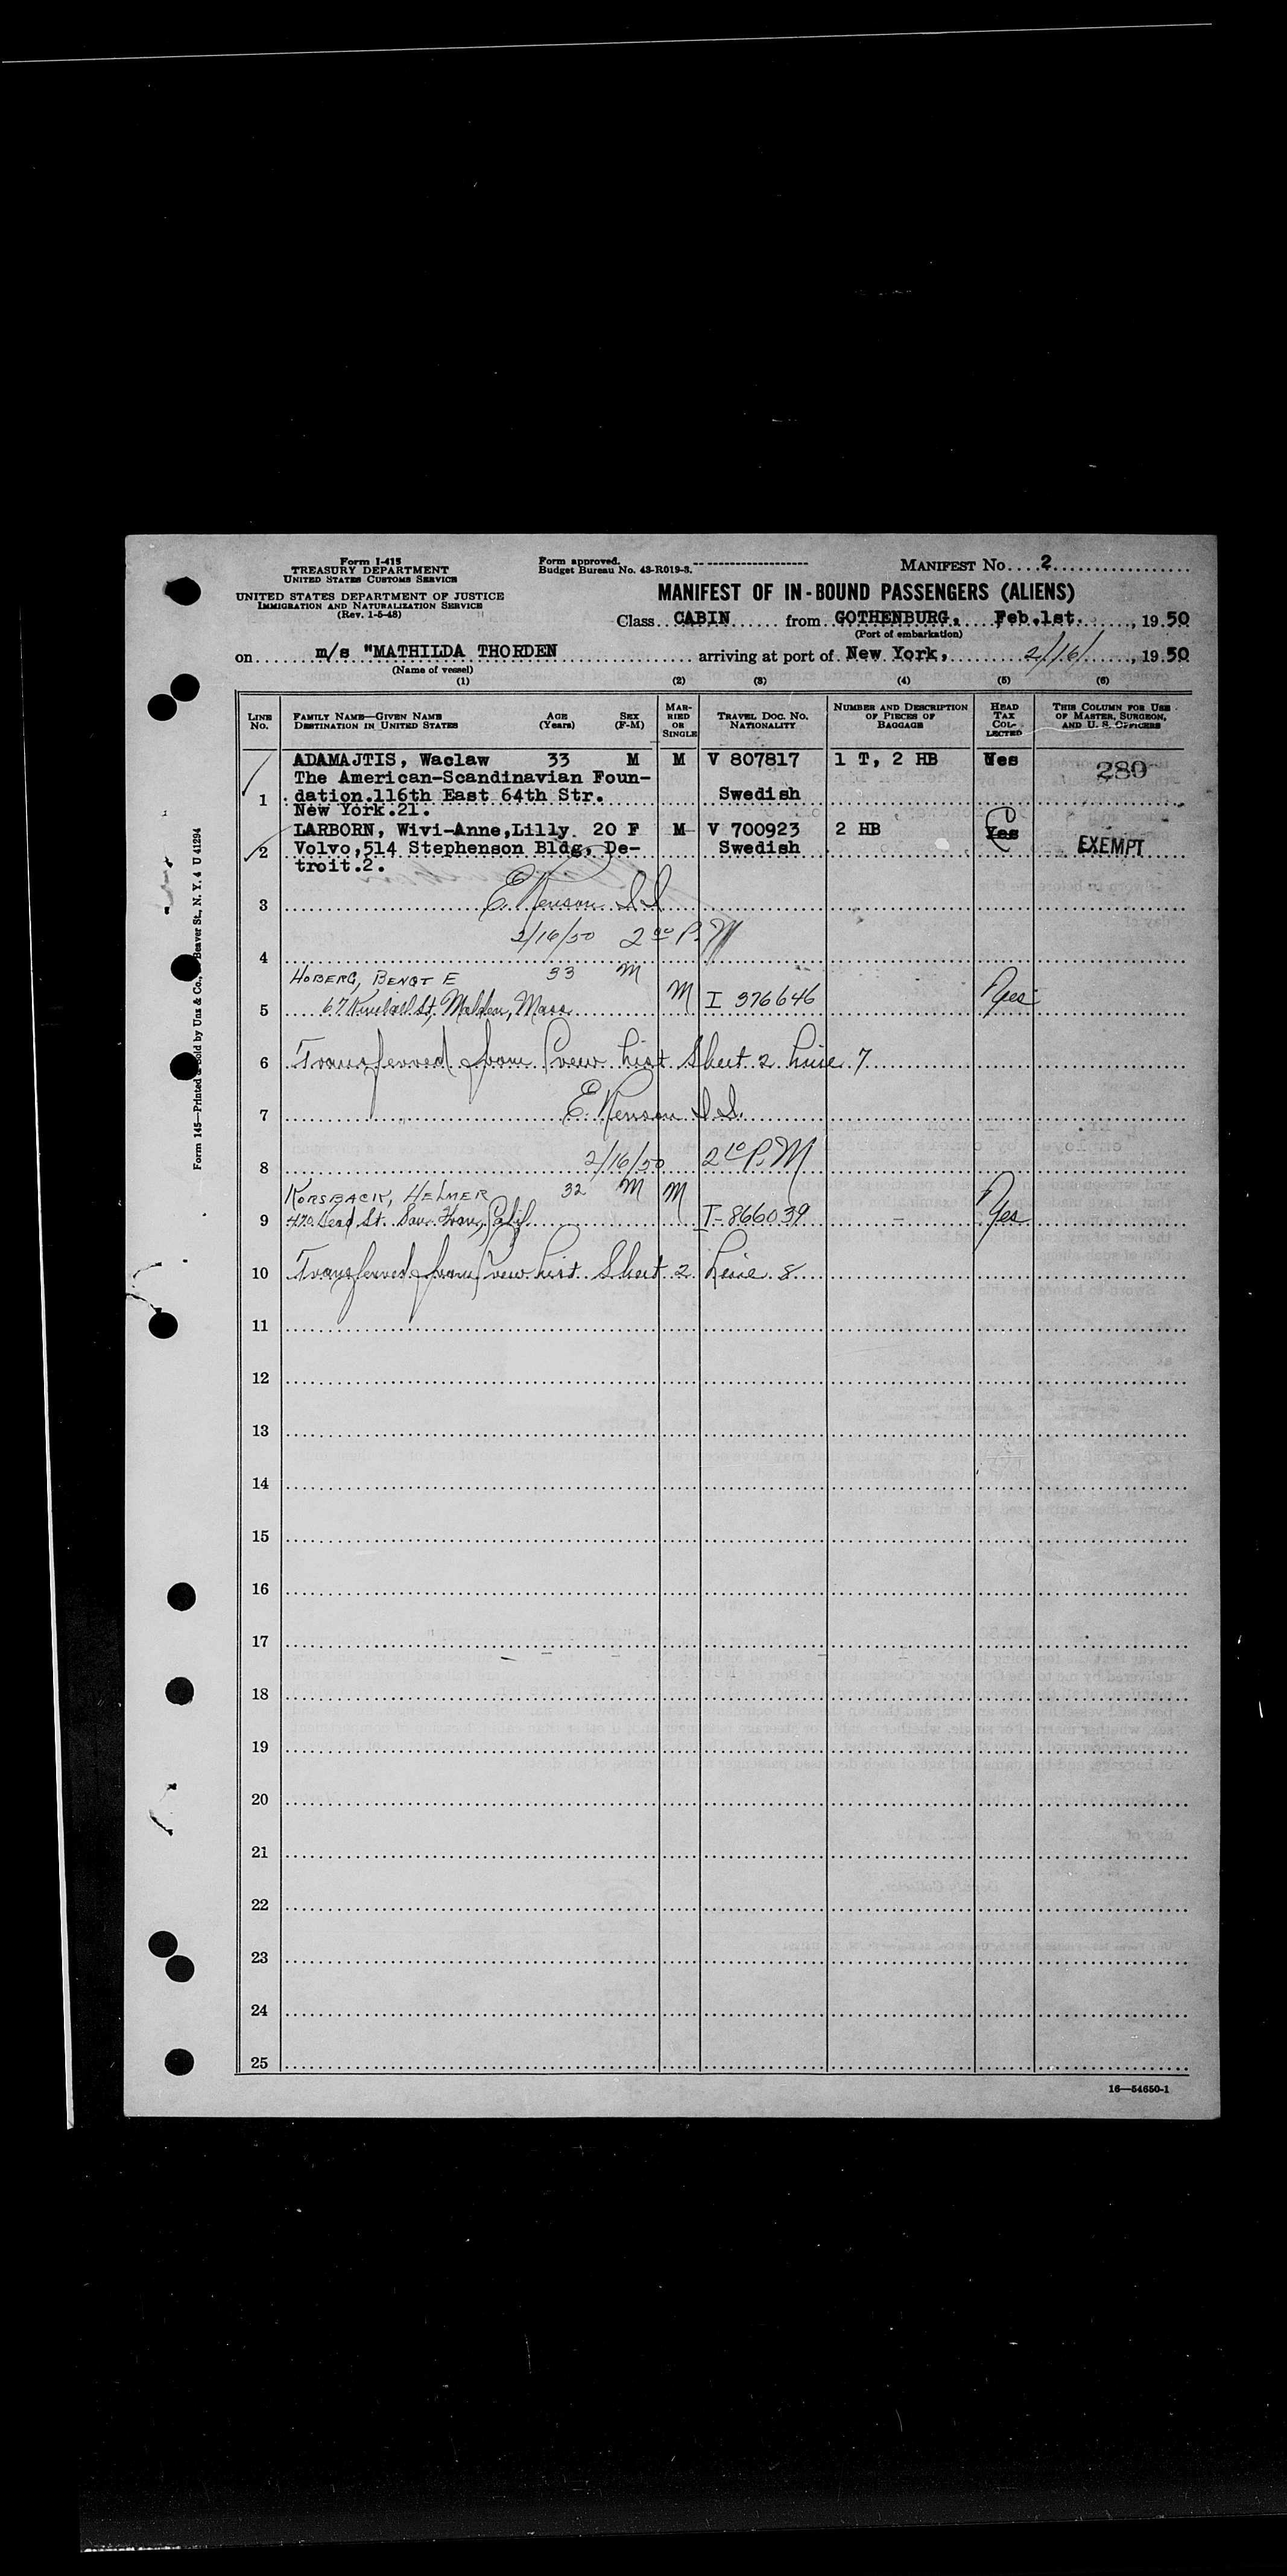 Form I-415
TREASURY DEPARTMENT
UNITED STATES CUSTOMS SERVICE
UNITED STATES DEPARTMENT OF JUSTICE
IMMIGRATION AND NATURALIZATION SERVICE
(Rev. 1-5-48)
Form approved.
Budget Bureau No. 43-R019-3.
MANIFEST No. 2
MANIFEST OF IN-BOUND PASSENGERS (ALIENS)
Class CABIN from GOTHENBURG, Feb.1st. , 19 50
(Port of embarkation)
on m/s "MATHILDA THORDEN arriving at port of New York, 2/16/ , 19 50
(Name of vessel)
(1) (2) (3) (4) (5) (6)
LINE No. FAMILY NAME—GIVEN NAME DESTINATION IN UNITED STATES AGE (Years) SEX (F-M) MARRIED OR SINGLE TRAVEL DOC. NO. NATIONALITY NUMBER AND DESCRIPTION OF PIECES OF BAGGAGE HEAD TAX COLLECTED THIS COLUMN FOR USE OF MASTER, SURGEON, AND U. S. OFFICERS
ADAMAJTIS, Waclaw 33 M M V 807817 1 T, 2 HB Yes 280
The American-Scandinavian Foun-
1 dation.116th East 64th Str. Swedish
New York.21.
LARBORN, Wivi-Anne,Lilly. 20 F M V 700923 2 HB Yes
2 Volvo,514 Stephenson Bldg, De- Swedish EXEMPT
troit.2.
3 E. Kenson I.I.
2/16/50 2 00 P.M
4
HOBERG, BENGT E 33 M M I 376646 Yes
5 67 Kimball St, Malden, Mass
6 Transferred from Crew List Sheet 2 Line 7
7 E. Kenson I.I.
8 2/16/50 2 10 P.M
KORSBACK, HELMER 32 M M
9 San Fran, Calif. I-866039 Yes
10 Transferred from Crew List Sheet 2 Line 8
11
12
13
14
15
16
17
18
19
20
21
22
23
24
25
16—54650-1
Form 145—Printed & Sold by Unz & Co., Beaver St., N. Y. 4 U 41294